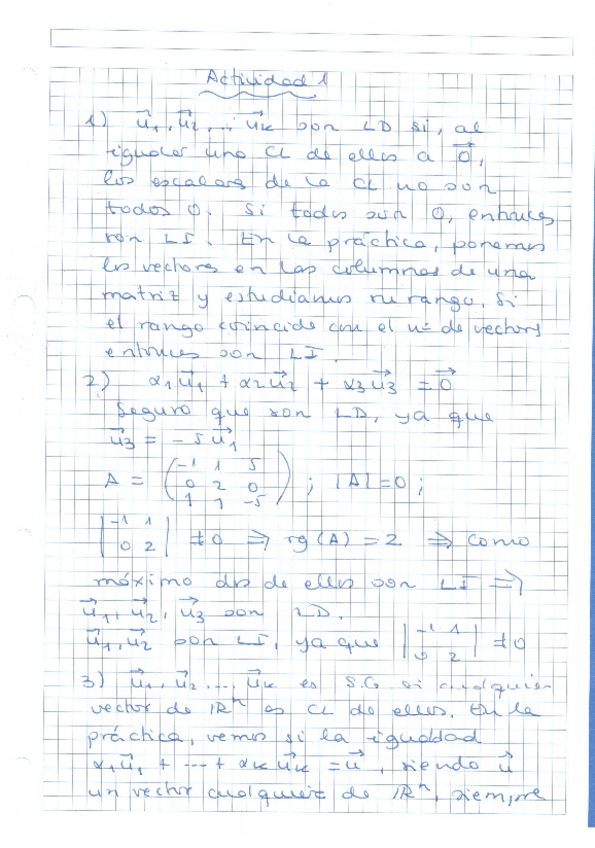 Actividad 1
1) u⃗1, u⃗2, ..., u⃗k son LD si, al
igualar una CL de ellos a 0⃗,
los escalares de la CL no son
todos 0. Si todos son 0, entonces
son LI. En la práctica, ponemos
los vectores en las columnas de una
matriz y estudiamos su rango. Si
el rango coincide con el nº de vectores
entonces son LI.
2) α1u⃗1 + α2u⃗2 + α3u⃗3 = 0⃗
Seguro que son LD, ya que
u⃗3 = -5u⃗1
A = (-1 1 5
0 2 0
1 1 -5) ; |A| = 0 ;
|-1 1
0 2| ≠ 0 ⇒ rg(A) = 2 ⇒ Como
máximo dos de ellos son LI ⇒
u⃗1, u⃗2, u⃗3 son LD.
u⃗1, u⃗2 son LI, ya que |-1 1
0 2| ≠ 0
3) u⃗1, u⃗2, ..., u⃗k es S.G. si cualquier
vector de ℝⁿ es CL de ellos. En la
práctica, vemos si la igualdad
α1u⃗1 + ... + αku⃗k = u⃗, siendo u⃗
un vector cualquiera de ℝⁿ, siempre